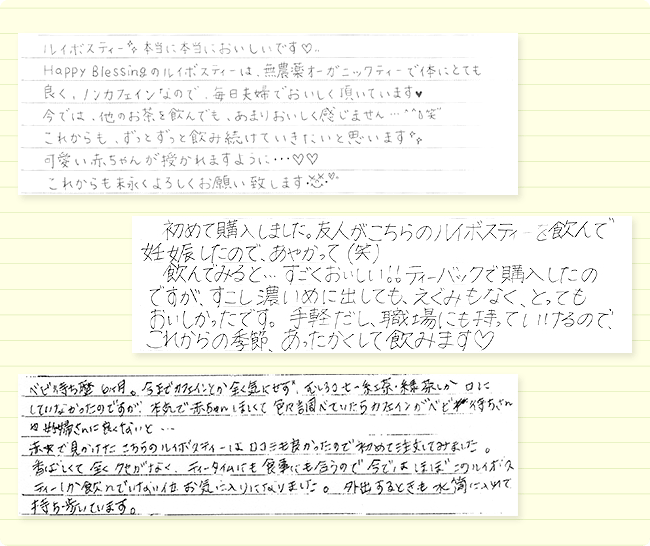 ルイボスティー 本当に本当においしいです♡..
Happy Blessingのルイボスティーは、無農薬オーガニックティーで体にとても
良く、ノンカフェインなので、毎日夫婦でおいしく頂いています♥
今では、他のお茶を飲んでも、あまりおいしく感じません…^^;笑
これからも、ずっとずっと飲み続けていきたいと思います
可愛い赤ちゃんが授かれますように・・・♡♡
これからも末永くよろしくお願い致します
初めて購入しました。友人がこちらのルイボスティーを飲んで
妊娠したので、あやかって(笑)
飲んでみると…すごくおいしい!!ティーバックで購入したの
ですが、すこし濃いめに出しても、えぐみもなく、とっても
おいしかったです。手軽だし、職場にも持っていけるので、
これからの季節、あったかくして飲みます♡
ベビ待ち歴6ヶ月。今までカフェインとか全く気にせず、むしろコーヒー紅茶・緑茶しか口に
していなかったのですが、本気で赤ちゃんほしくて色々調べていたらカフェインがベビ待ちさん
妊婦さんに良くないと…
で見かけたこちらのルイボスティーは口コミも良かったので初めて注文してみました。
香ばしくて全くクセがなく、ティータイムにも食事にも合うので今ではほぼこのルイボス
ティーしか飲んでいない位お気に入りになりました。外出するときも水筒に入れて
持ち歩いています。